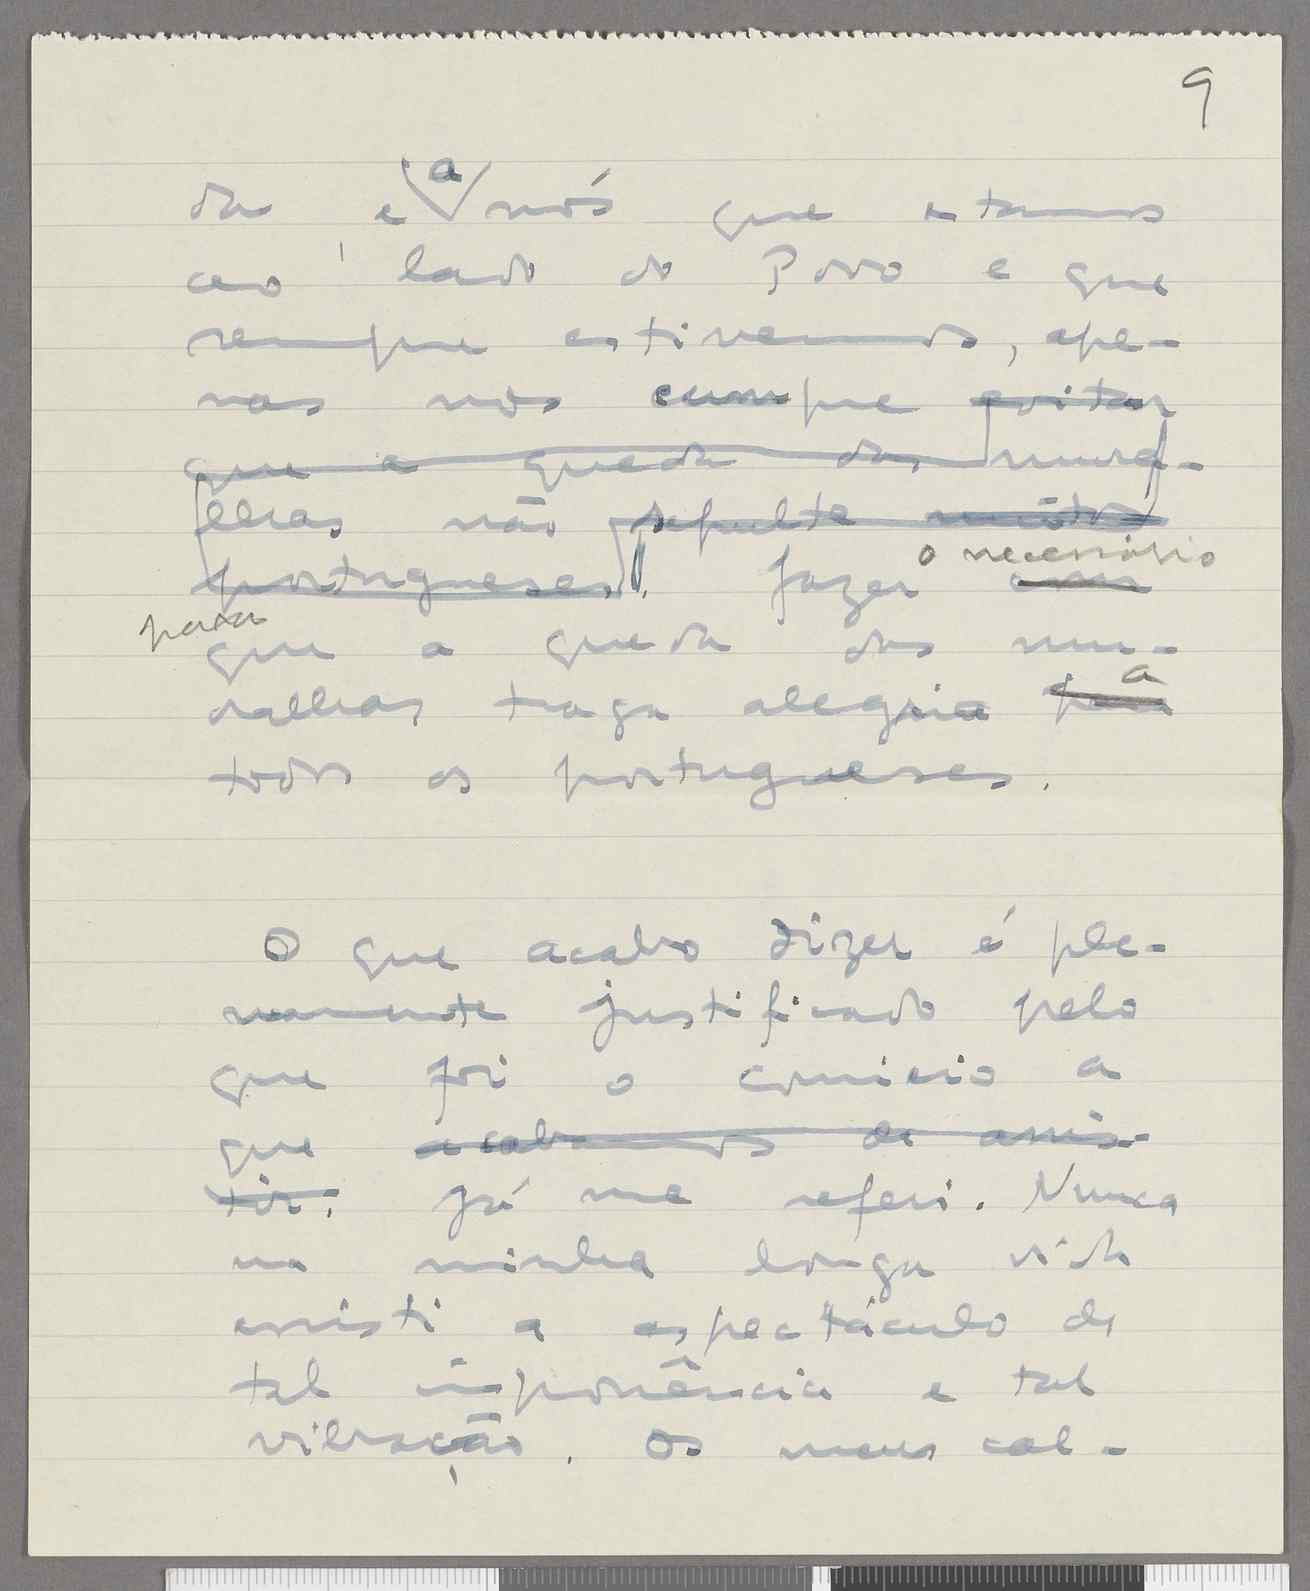 9
da e a nós que estamos
ao lado do Povo e que
sempre estivemos, ape-
nas nos cumpre evitar
que a queda das mura-
lhas não sepulte muitos
portugueses. fazer com o necessário
para que a queda das mu-
ralhas traga alegria para a
todos os portugueses.
O que acabo dizer é ple-
namente justificado pelo
que foi o comício a
que acabamos de assis-
tir. já me referi. Nunca
na minha longa vida
assisti a espectáculo de
tal imponência e tal
vibração. Os meus cal-